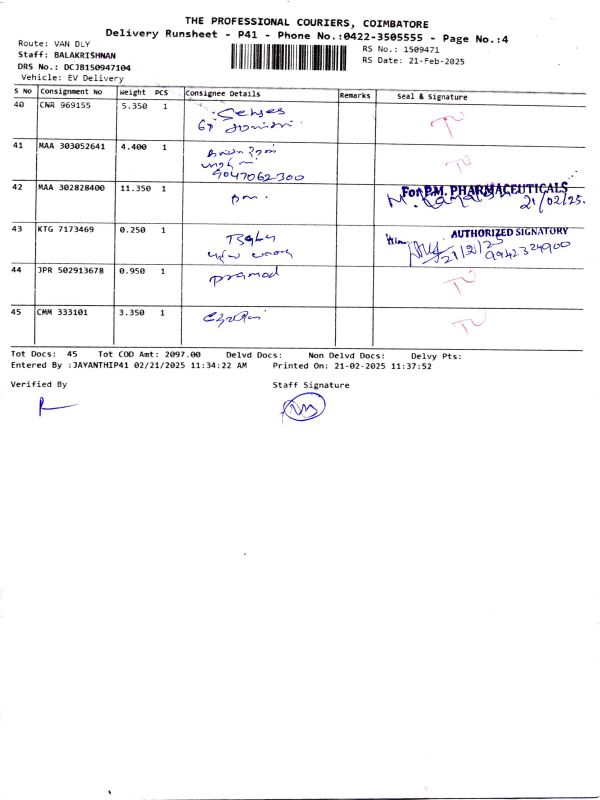 THE PROFESSIONAL COURIERS, COIMBATORE
Delivery Runsheet - P41 - Phone No.:0422-3505555 - Page No.:4
Route: VAN DLY
RS No.: 1509471
Staff: BALAKRISHNAN
RS Date: 21-Feb-2025
DRS No.: DCJB150947104
Vehicle: EV Delivery
S No Consignment No Weight PCS Consignee Details Remarks Seal & Signature
40 CNR 969155 5.350 1
41 MAA 303052641 4.400 1
9047062300
42 MAA 302828400 11.350 1 pm.
For P.M. PHARMACEUTICALS
21/02/25.
AUTHORIZED SIGNATORY
43 KTG 7173469 0.250 1
21/2/25
9942324900
44 JPR 502913678 0.950 1 pramod
45 CMM 333101 3.350 1
Tot Docs: 45 Tot COD Amt: 2097.00 Delvd Docs: Non Delvd Docs: Delvy Pts:
Entered By :JAYANTHIP41 02/21/2025 11:34:22 AM Printed On: 21-02-2025 11:37:52
Verified By Staff Signature